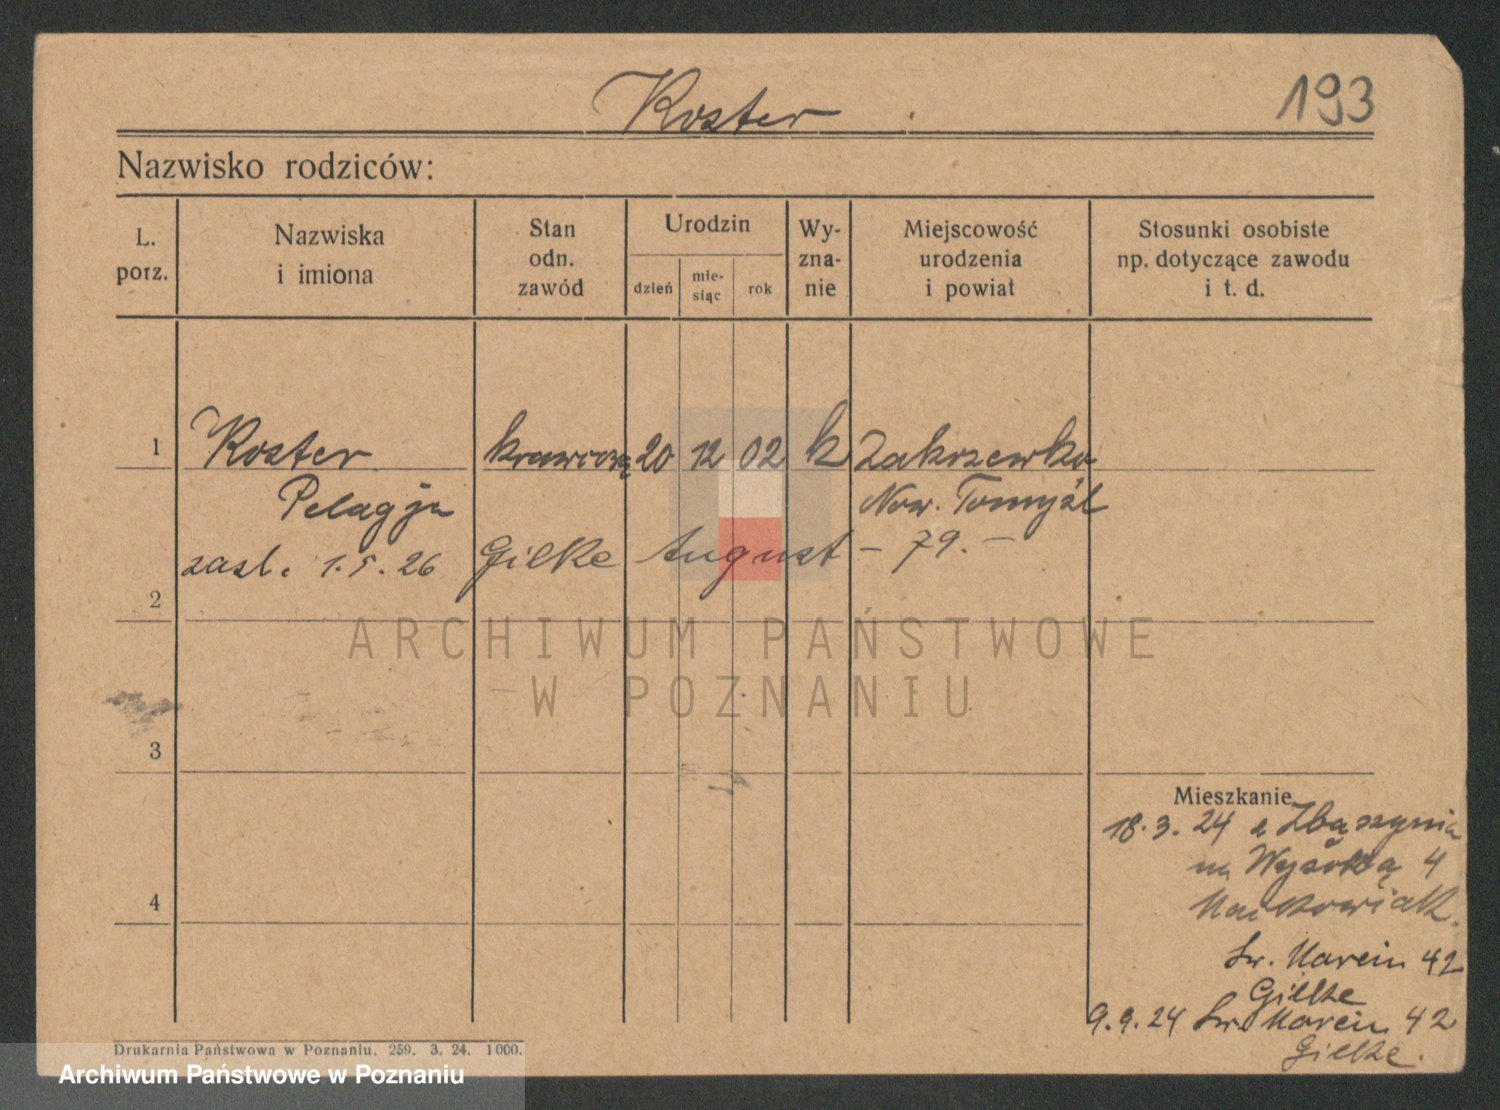 Koster
193
Nazwisko rodziców:
L. porz.
Nazwiska i imiona
Stan odn. zawód
Urodzin
dzień
mie-siąc
rok
Wy-zna-nie
Miejscowość urodzenia i powiat
Stosunki osobiste np. dotyczące zawodu i t. d.
1 Koster krawcową 20 12 02 k Zakrzewko
Pelagja Now. Tomyśl
zasl. 1.5.26 Gilke August – 79. –
2
ARCHIWUM PAŃSTWOWE
W POZNANIU
3
Mieszkanie
18.3.24 z Zbąszynia
na Wysoką 4
4
św. Marcin 42
Gilke
9.9.24 św. Marcin 42
Gilke.
Drukarnia Państwowa w Poznaniu. 259. 3. 24. 1000.
Archiwum Państwowe w Poznaniu